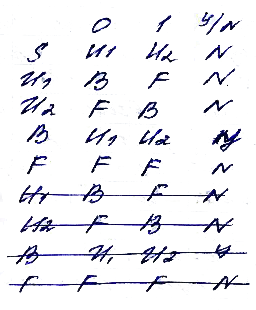 0 1 Y/N
S U1 U2 N
U1 B F N
U2 F B N
B U1 U2 Y
F F F N
U1 B F N
U2 F B N
B U1 U2 Y
F F F N